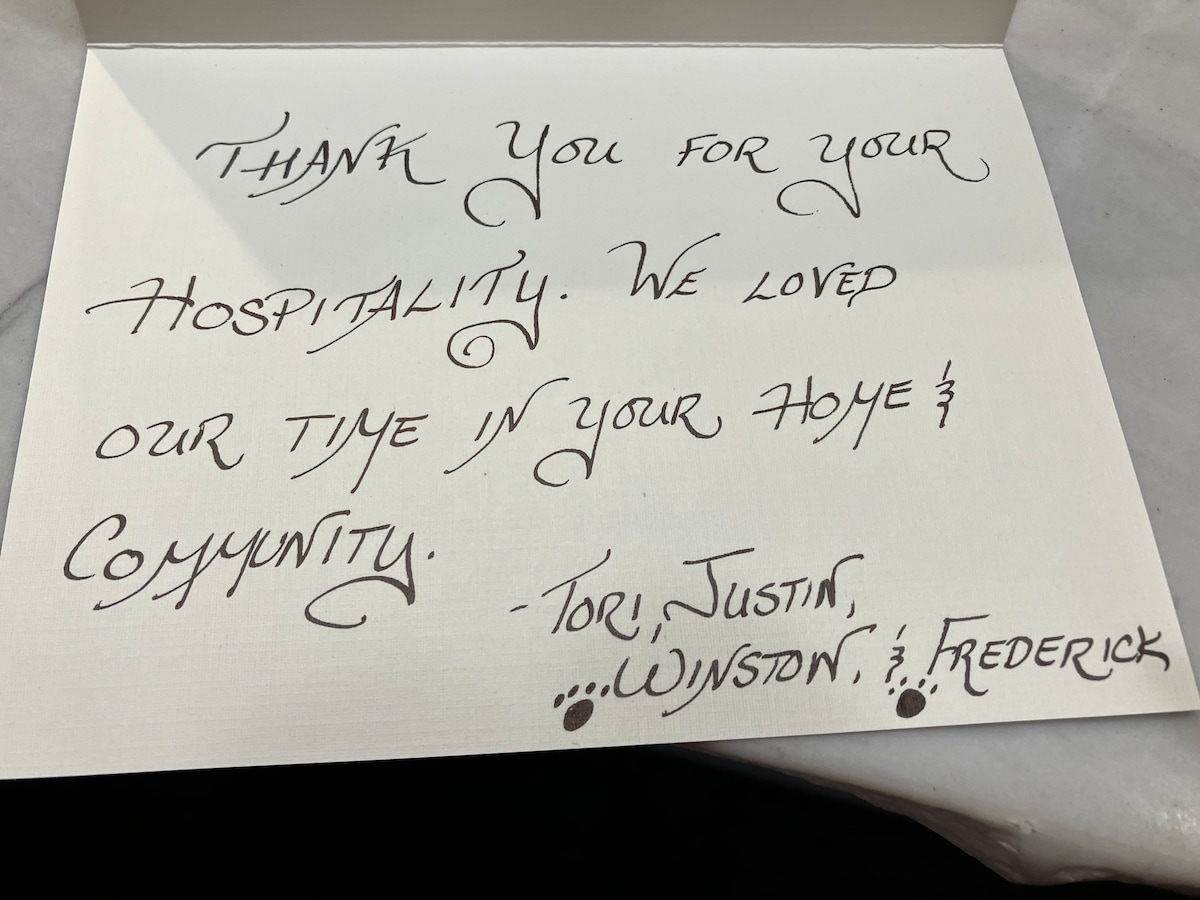 THANK YOU FOR YOUR
HOSPITALITY. WE LOVED
OUR TIME IN YOUR HOME &
COMMUNITY.
-TORI, JUSTIN,
WINSTON, & FREDERICK